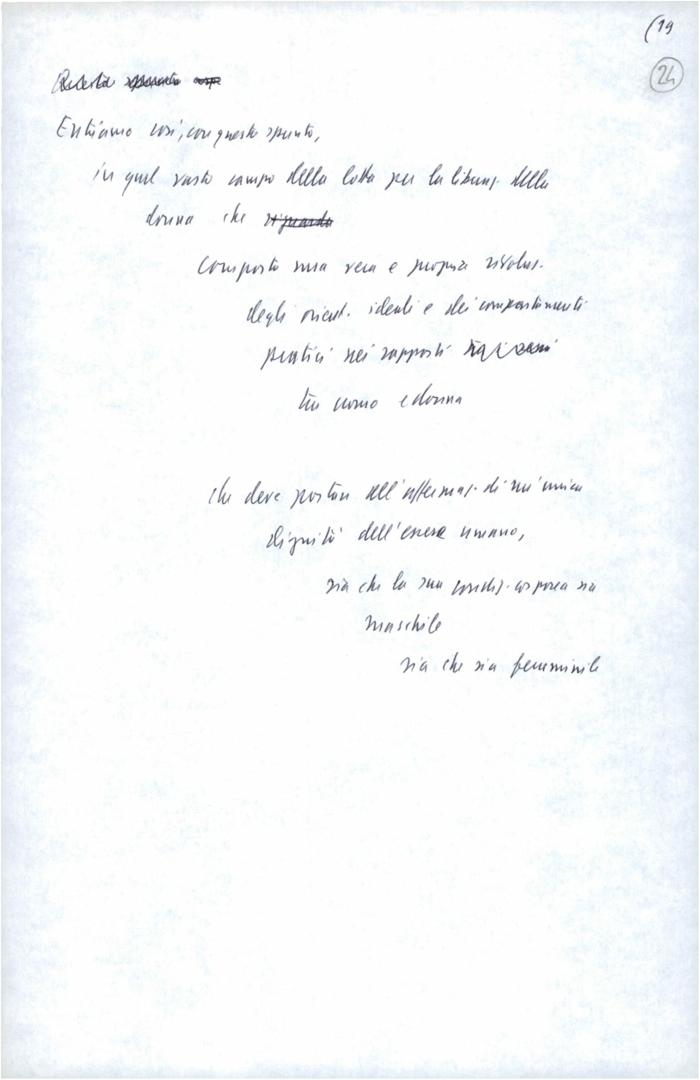 (19
24
Entriamo così, con questo spunto,
in quel vasto campo della lotta per la liberaz. della
donna che riguarda
comporta una vera e propria rivoluz.
degli orient. ideali e dei comportamenti
pratici nei rapporti
tra uomo e donna
che deve portare all'affermaz. di un'unica
dignità dell'essere umano,
sia che la sua condiz. corporea sia
maschile
sia che sia femminile